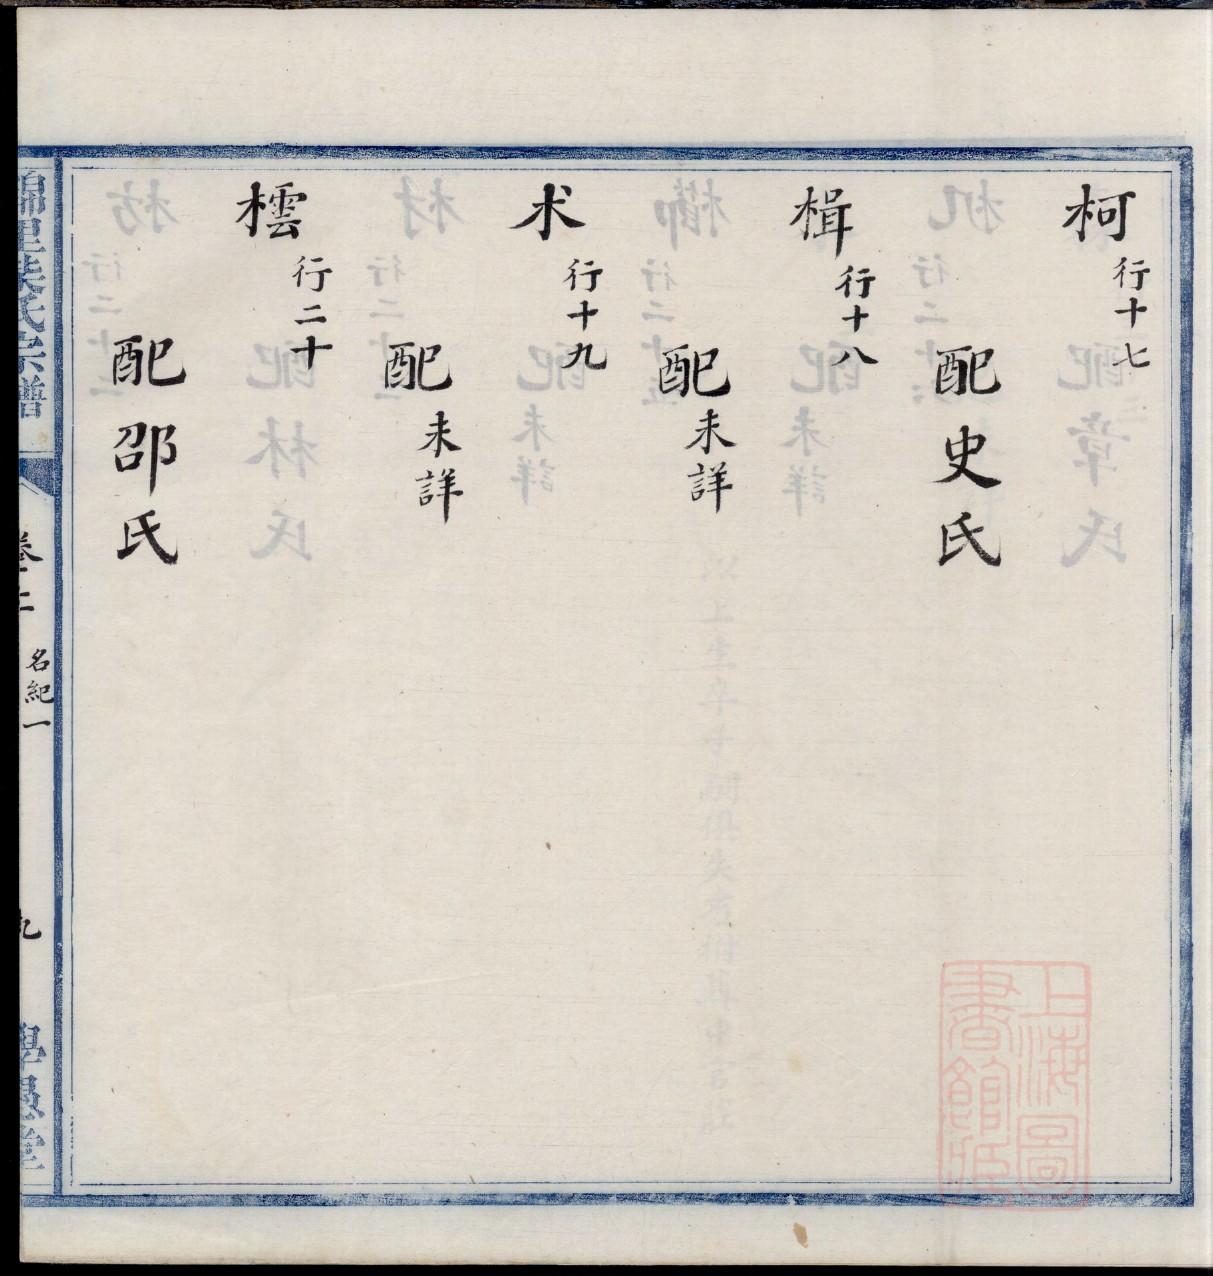 柯 行十七
配史氏
楫 行十八
配 未詳
术 行十九
配 未詳
橒 行二十
配邵氏
錦里葉氏宗譜
卷二 名紀一
九
學愚堂
上海圖書館藏